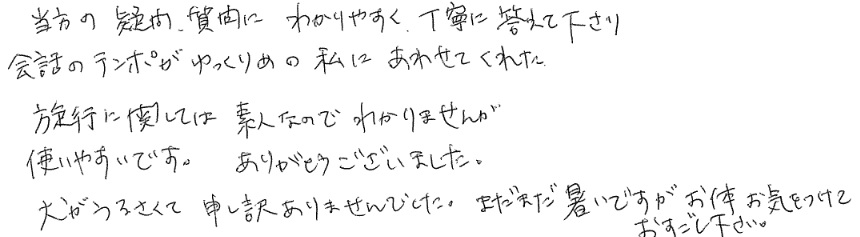 当方の疑問、質問に わかりやすく、丁寧に答えて下さり
会話のテンポがゆっくりめの私にあわせてくれた
施行に関しては素人なのでわかりませんが
使いやすいです。 ありがとうございました。
犬がうるさくて申し訳ありませんでした。まだまだ暑いですがお体お気をつけて
おすごし下さい。